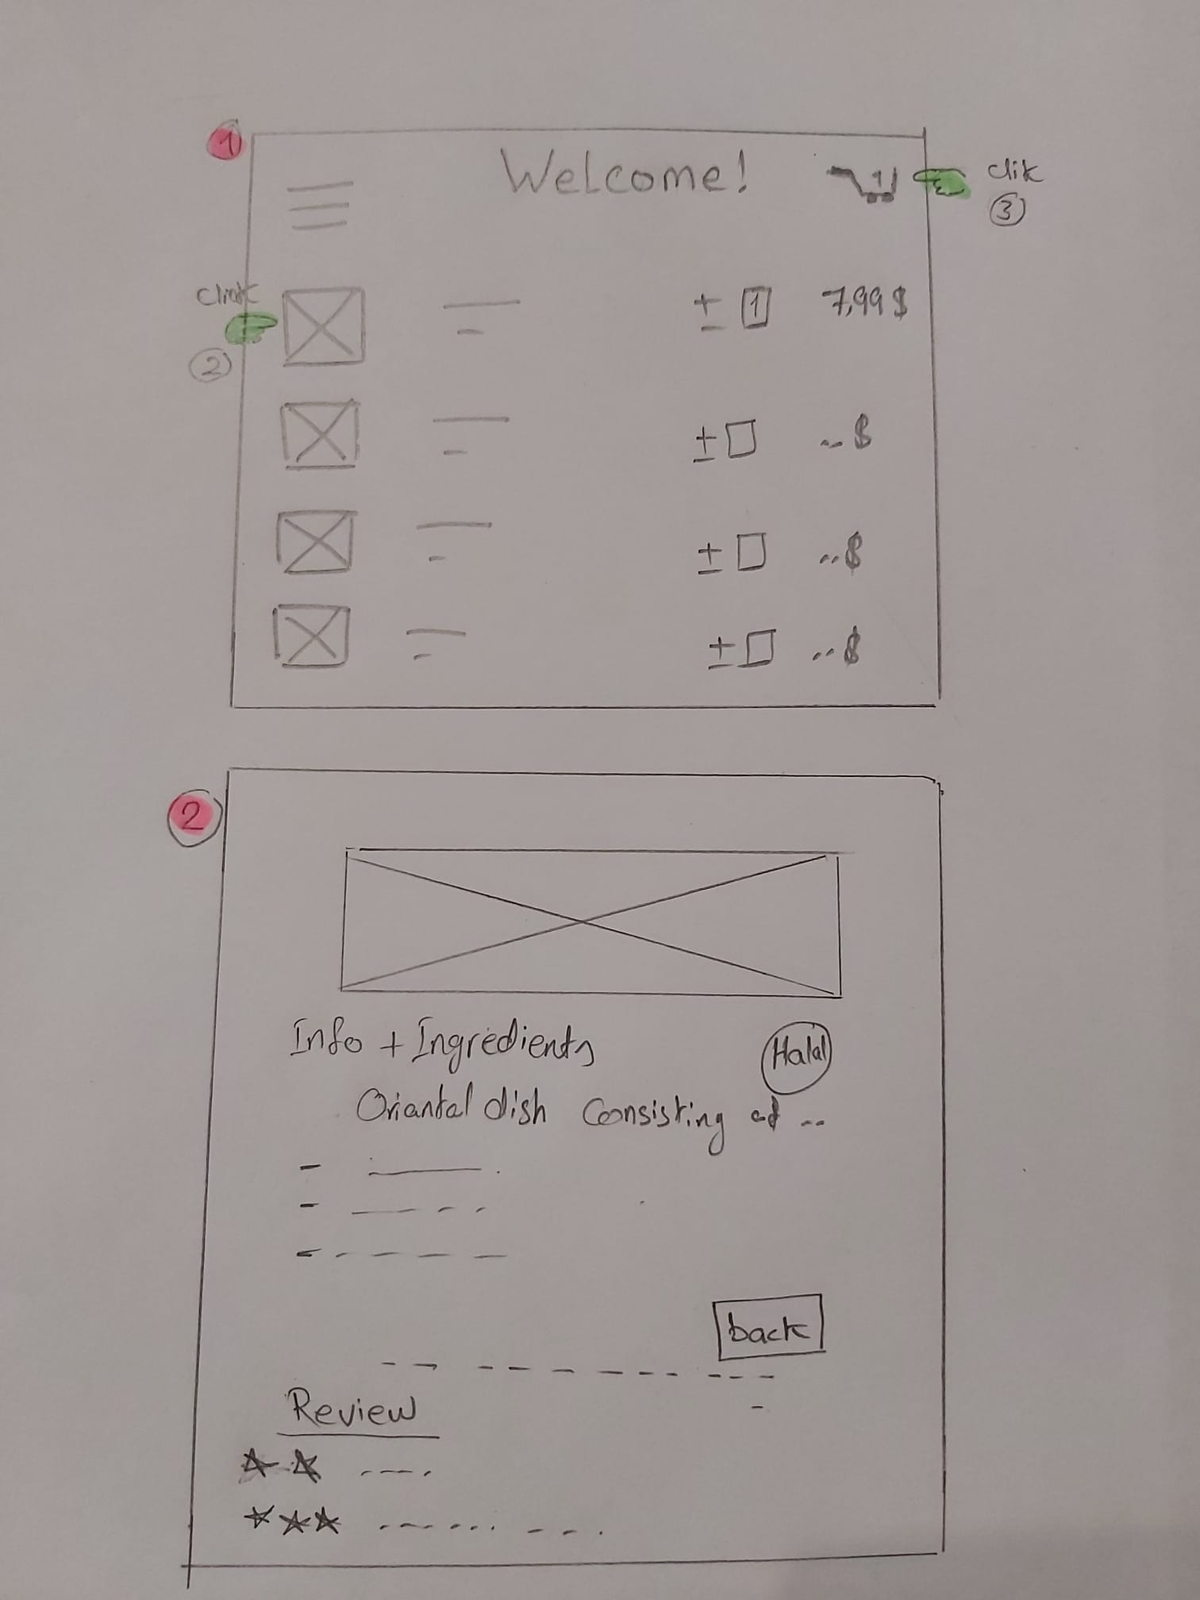 1
Welcome!
1
clik
3
click
2
+ - 1 7,99 $
+ - .. $
+ - .. $
+ - .. $
2
Info + Ingredients
Halal
Oriantal dish Consisting of ..
back
Review